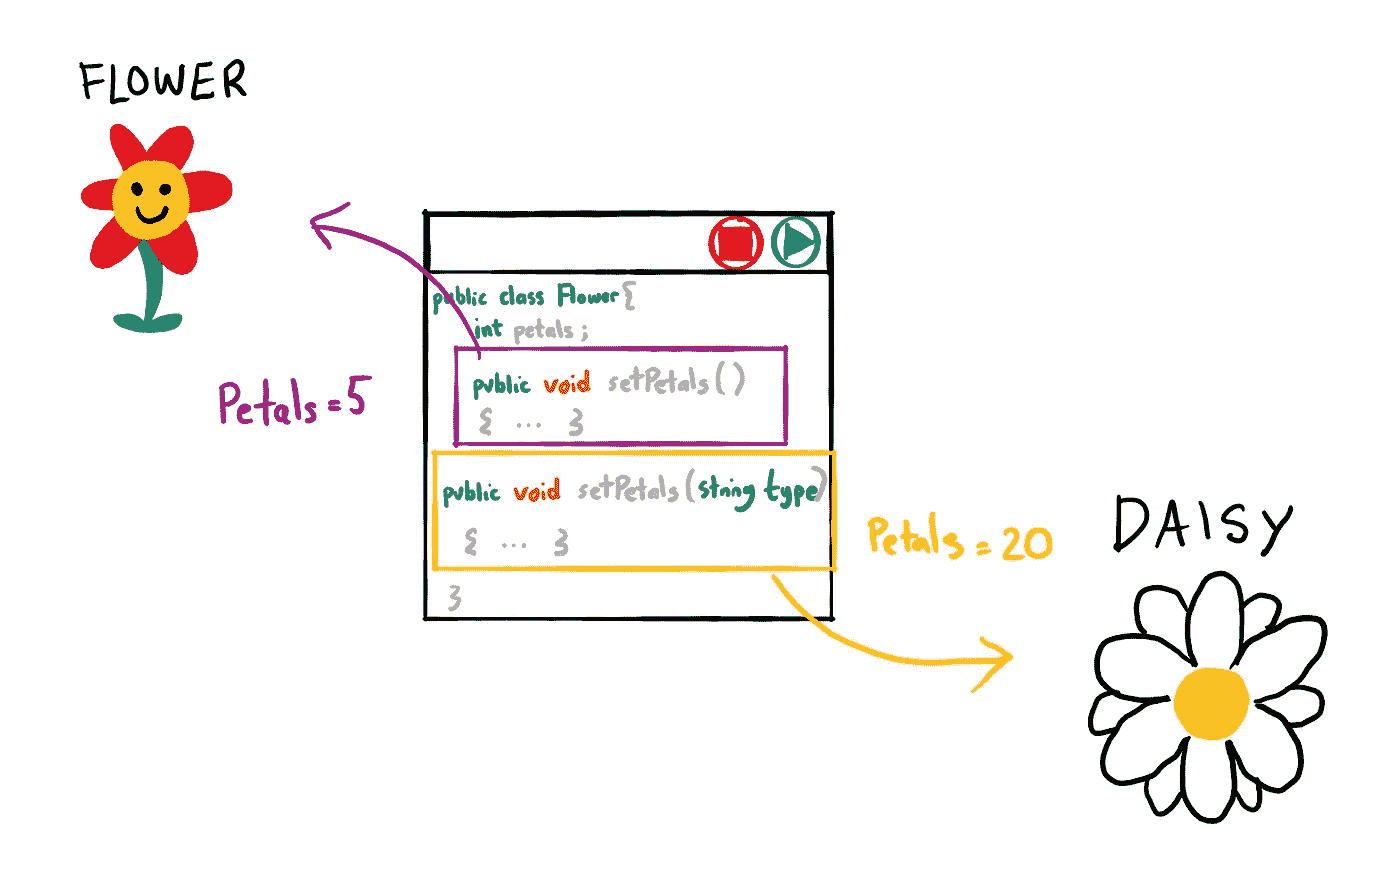 FLOWER
public class Flower{
int petals;
public void setPetals()
{ ... }
Petals = 5
public void setPetals(string type)
{ ... }
}
Petals = 20
DAISY